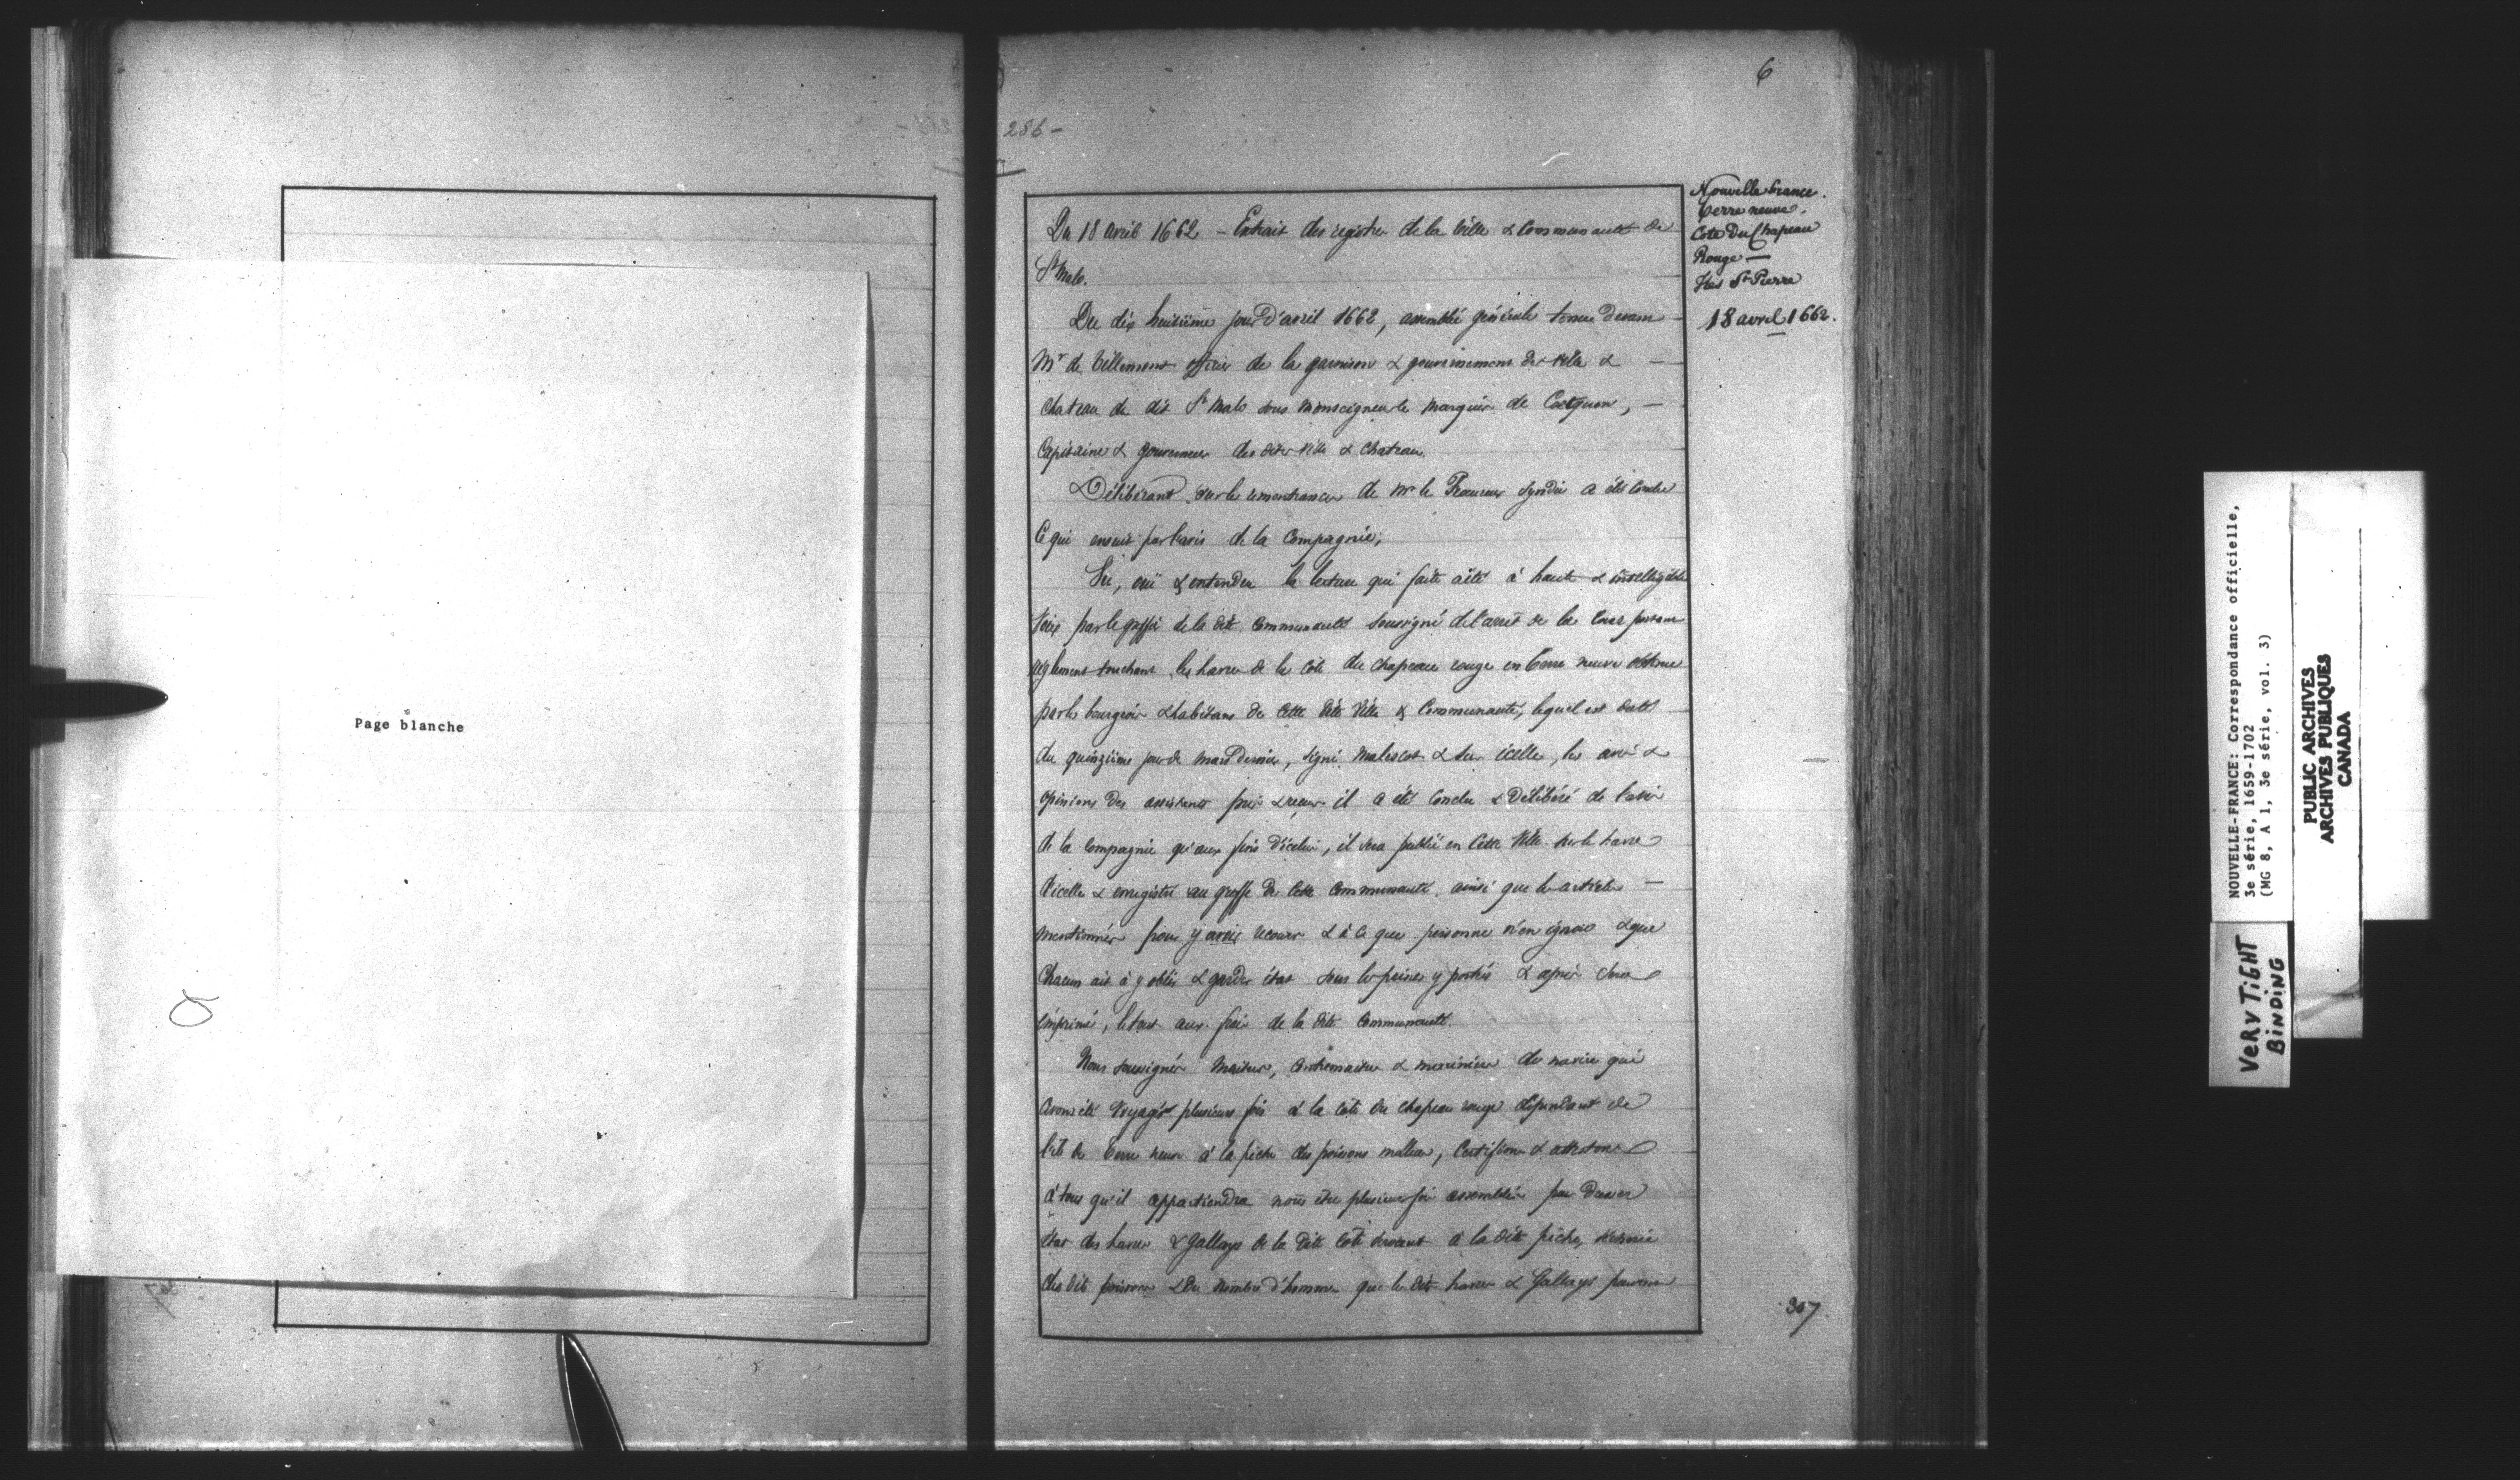 Page blanche
6
286 -
Nouvelle france.
terre neuve.
Cote Du Chapeau
Rouge —
Iles St Pierre
18 avril 1662.
Du 18 avril 1662 — Extrait des registres de la Ville & Communauté de
St Malo.
Du dix huitième jour d'avril 1662, assemblée générale tenue devant
Mr de Villemont officier de la garnison & gouvernement des ville & —
Chateau de dit St Malo sous Monseigneur le Marquis de Coetquen, —
Capitaine & gouverneur des dites ville & Chateau.
Délibérant sur les remontrances de Mr le Procureur syndic a été conclu
Ce qui ensuit par l'avis de la Compagnie;
ouï & entendu la lecture qui faite a été à haute & intelligible
Voix par le greffier de la dite Communauté soussigné de l'arret de la Cour portant
règlement touchant les havres de la côte du chapeau rouge en terre neuve obtenu
par les bourgeois & habitans de cette dite Ville & Communauté, lequel est datté
du quinzième jour de mars dernier, signé Malescot & sur icelle, les avis &
opinions des assistants pris & reçus il a été conclu & délibéré de l'avis
de la Compagnie qu'aux fins d'icelui, il sera publié en cette Ville sur le havre
d'icelle & enregistré au greffe de cette Communauté ainsi que les articles —
mentionnés pour y avoir recours & à ce que personne n'en ignore & que
Chacun ait à y obéir & garder état sous les peines y portées & après sera
imprimé, le tout aux frais de la dite Communauté.
Nous soussignés Maitres, Contremaitres & mariniers de navire qui
avons été voyagé plusieurs fois à la cote du chapeau rouge dépendant de
l'ile de Terre neuve à la pêche des poissons mollues, Certifions & attestons
à tous qu'il appartiendra nous être plusieurs fois assemblés pour dresser
état des havres & gallays de la dite côte servant à la dite pêche,
des dits poissons & du nombre d'hommes que les dits havres & Gallays peuvent
307
NOUVELLE-FRANCE: Correspondance officielle,
3e série, 1659-1702
(MG 8, A 1, 3e série, vol. 3)
PUBLIC ARCHIVES
ARCHIVES PUBLIQUES
CANADA
VERY TIGHT
BINDING